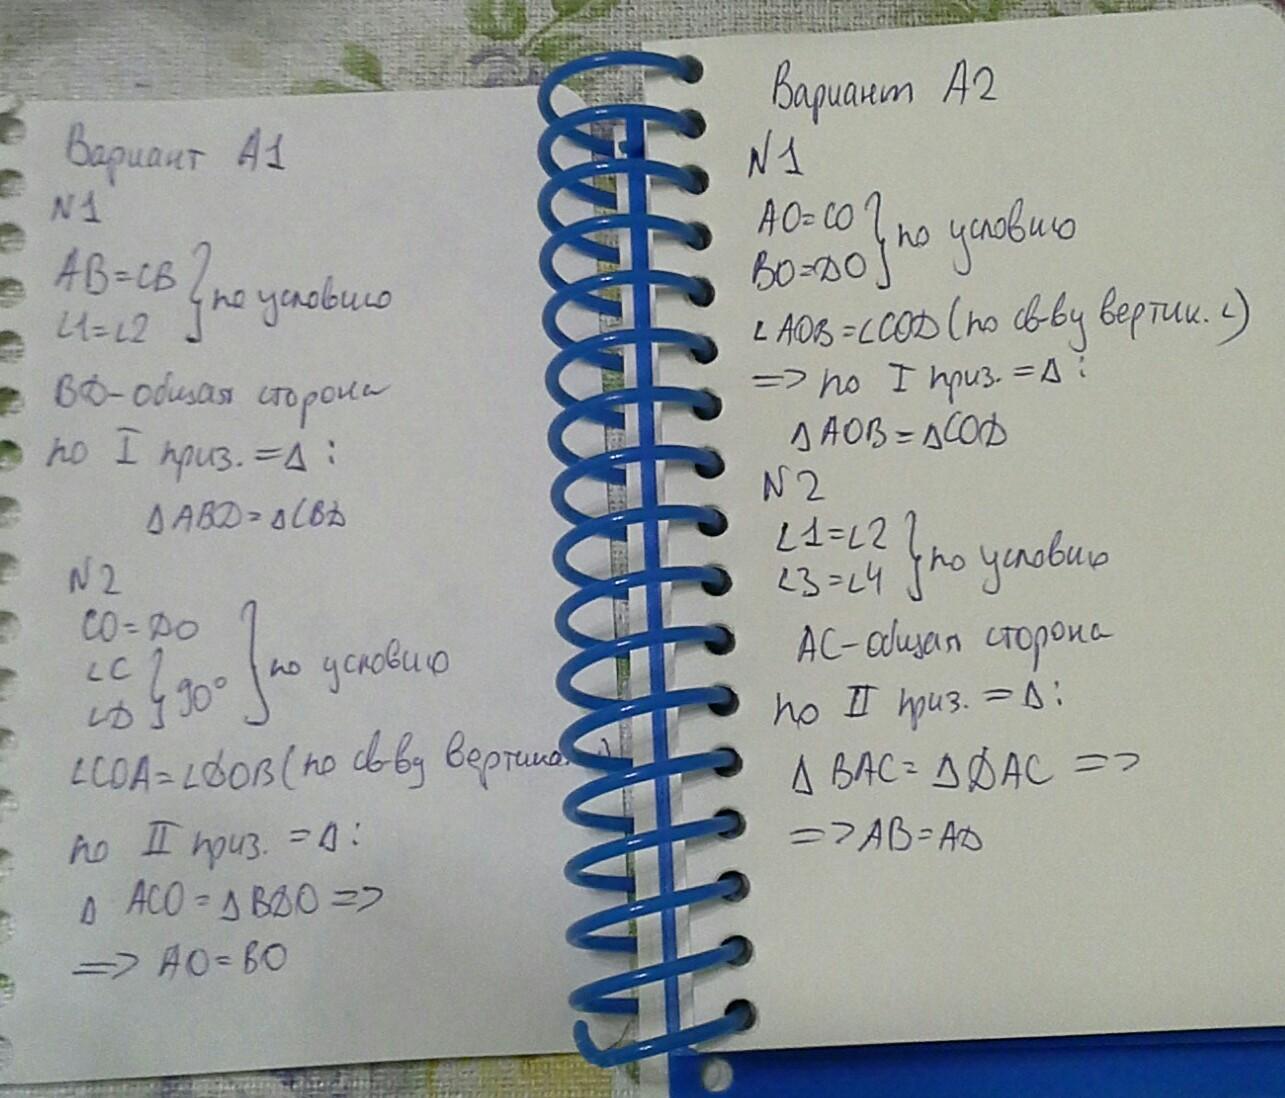 Вариант А1
N1
AB=CB
∠1=∠2 } по условию
BD-общая сторона
по I приз. =Δ :
ΔABD=ΔCBD
N2
CO=DO
∠C
∠D } 90° } по условию
∠COA=∠DOB (по св-ву вертикал.)
по II приз. =Δ :
Δ ACO = ΔBDO =>
=> AO=BO
Вариант А2
N1
AO=CO
BO=DO } по условию
∠AOB=∠COD (по св-ву вертик. ∠)
=> по I приз. =Δ :
ΔAOB=ΔCOD
N2
∠1=∠2
∠3=∠4 } по условию
AC-общая сторона
по II приз. =Δ :
Δ BAC= ΔDAC =>
=> AB=AD